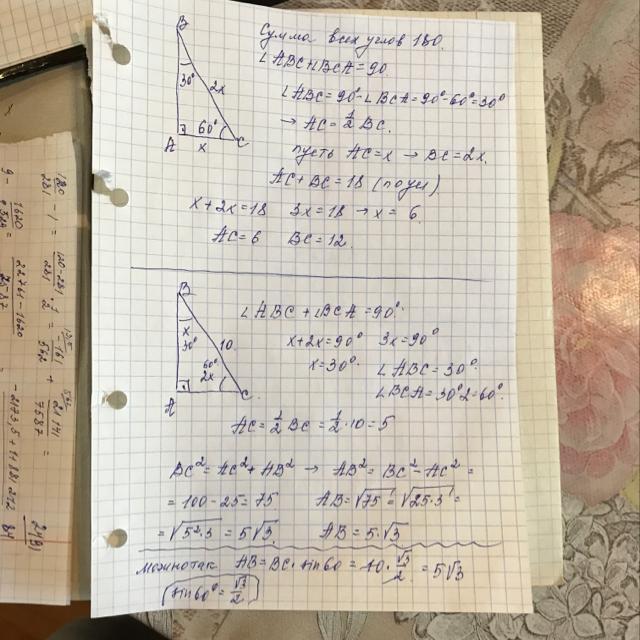 B
Сумма всех углов 180.
∠ABC+∠BCA=90
30° 2x
∠ABC=90°-∠BCA=90°-60°=30°
→ AC=1/2 BC.
60°
A x C
пусть AC=x → BC=2x.
AC+BC=18 (по усл)
x+2x=18 3x=18 → x=6.
AC=6 BC=12.
B
∠ABC+∠BCA=90°
x
30° 10
x+2x=90° 3x=90°
60°
2x
x=30° ∠ABC=30°
A C
∠BCA=30°·2=60°
AC=1/2 BC=1/2·10=5
BC²=AC²+AB² → AB²=BC²-AC²=
=100-25=75 AB=√75=√25·3=
=√5²·3=5√3 AB=5·√3
можно так AB=BC·sin60=10·√3/2=5√3
sin60°=√3/2